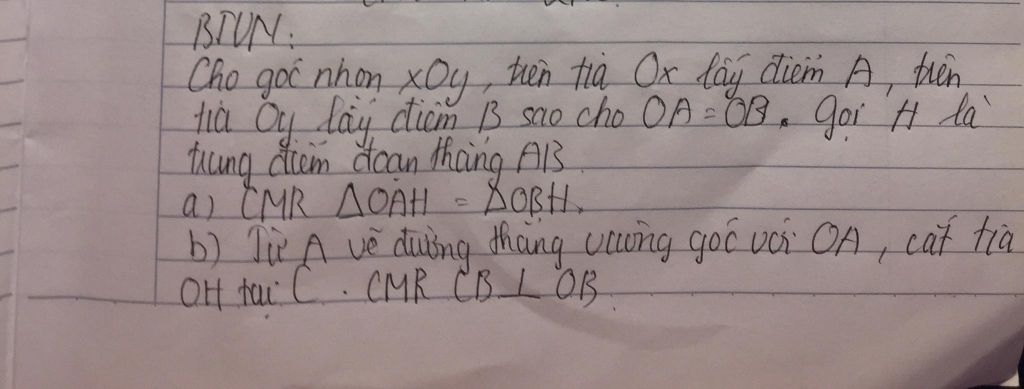 BTVN:
Cho góc nhọn xOy, trên tia Ox lấy điểm A, trên
tia Oy lấy điểm B sao cho OA = OB. Gọi H là
trung điểm đoạn thẳng AB
a) CMR ΔOAH = ΔOBH.
b) Từ A vẽ đường thẳng vuông góc với OA, cắt tia
OH tại C. CMR CB ⊥ OB